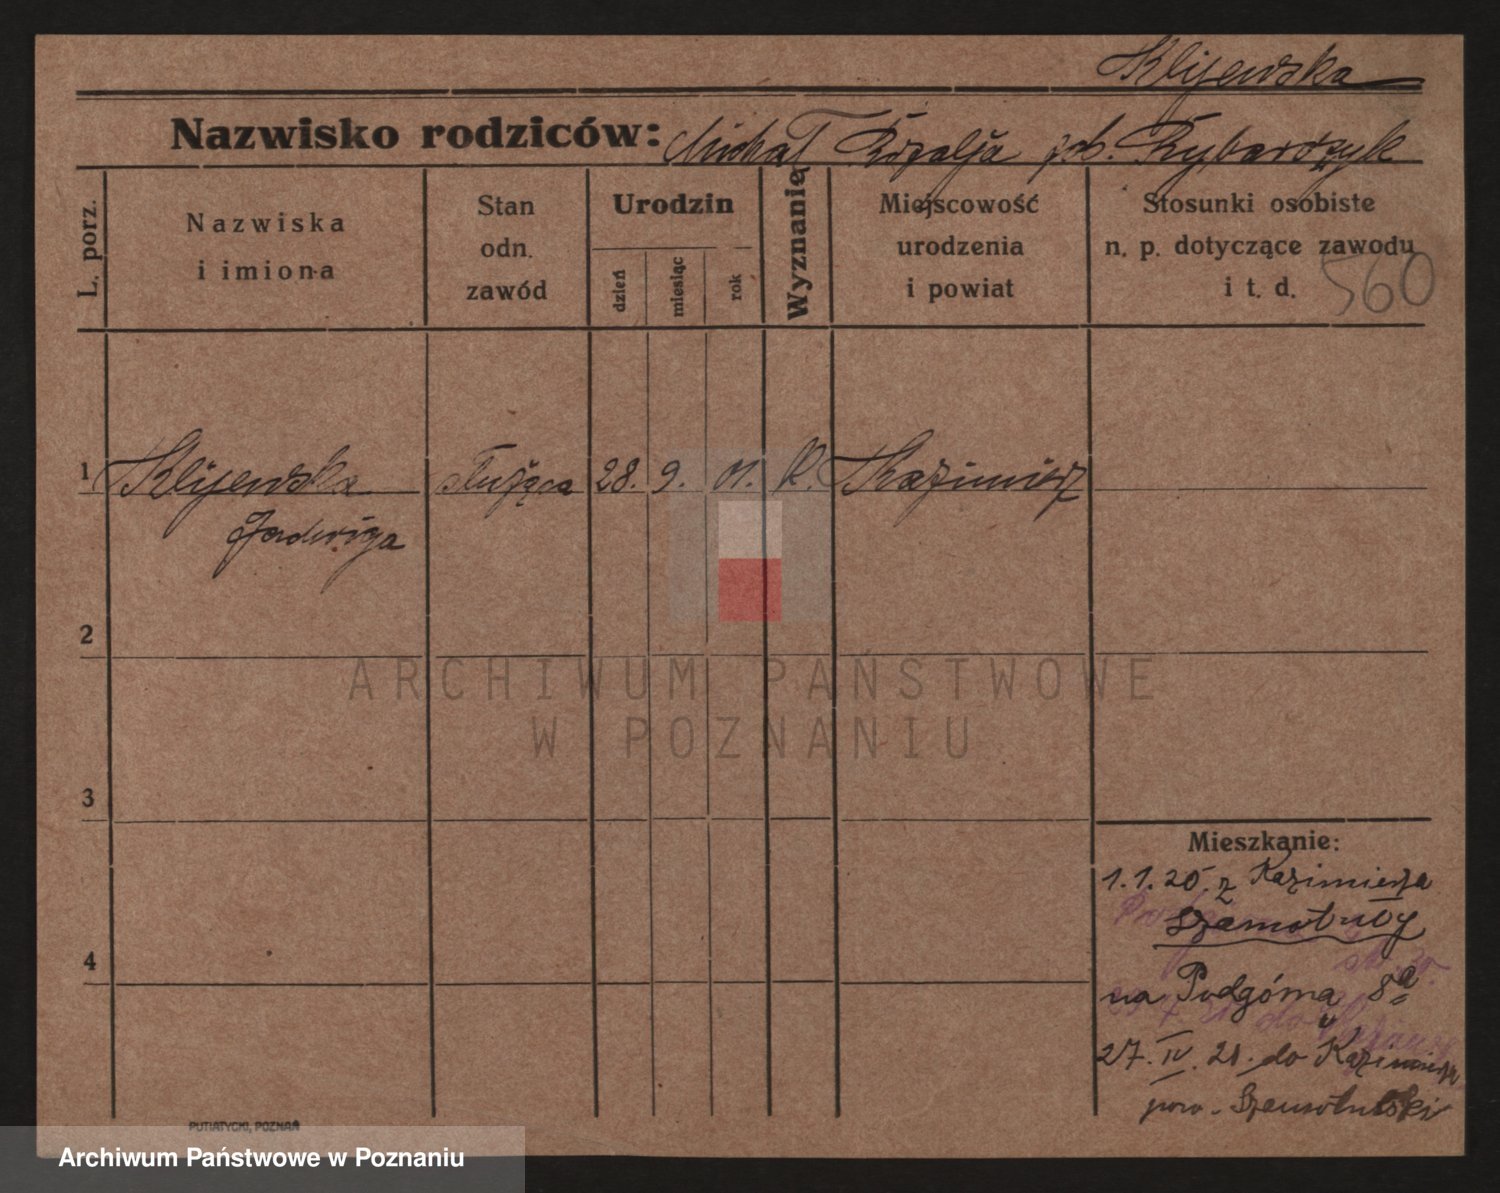 Klijewska
Nazwisko rodziców: Michał Rozalja zob. Rybarczyk
L. porz.
Nazwiska
i imiona
Stan
odn.
zawód
Urodzin
dzień
miesiąc
rok
Wyznanię
Miejscowość
urodzenia
i powiat
Stosunki osobiste
n. p. dotyczące zawodu
i t. d.
560
1 Klijewska służąca 28. 9. 01. K. Kazimierz
Jadwiga
2
3
4
Mieszkanie:
1.1.20. z Kazimierza
Szamotuły
na Podgórną 8a
27. IV. 21. do Kazimierza
pow. Szamotulski
PUTIATYCKI, POZNAŃ
ARCHIWUM PAŃSTWOWE
W POZNANIU
Archiwum Państwowe w Poznaniu